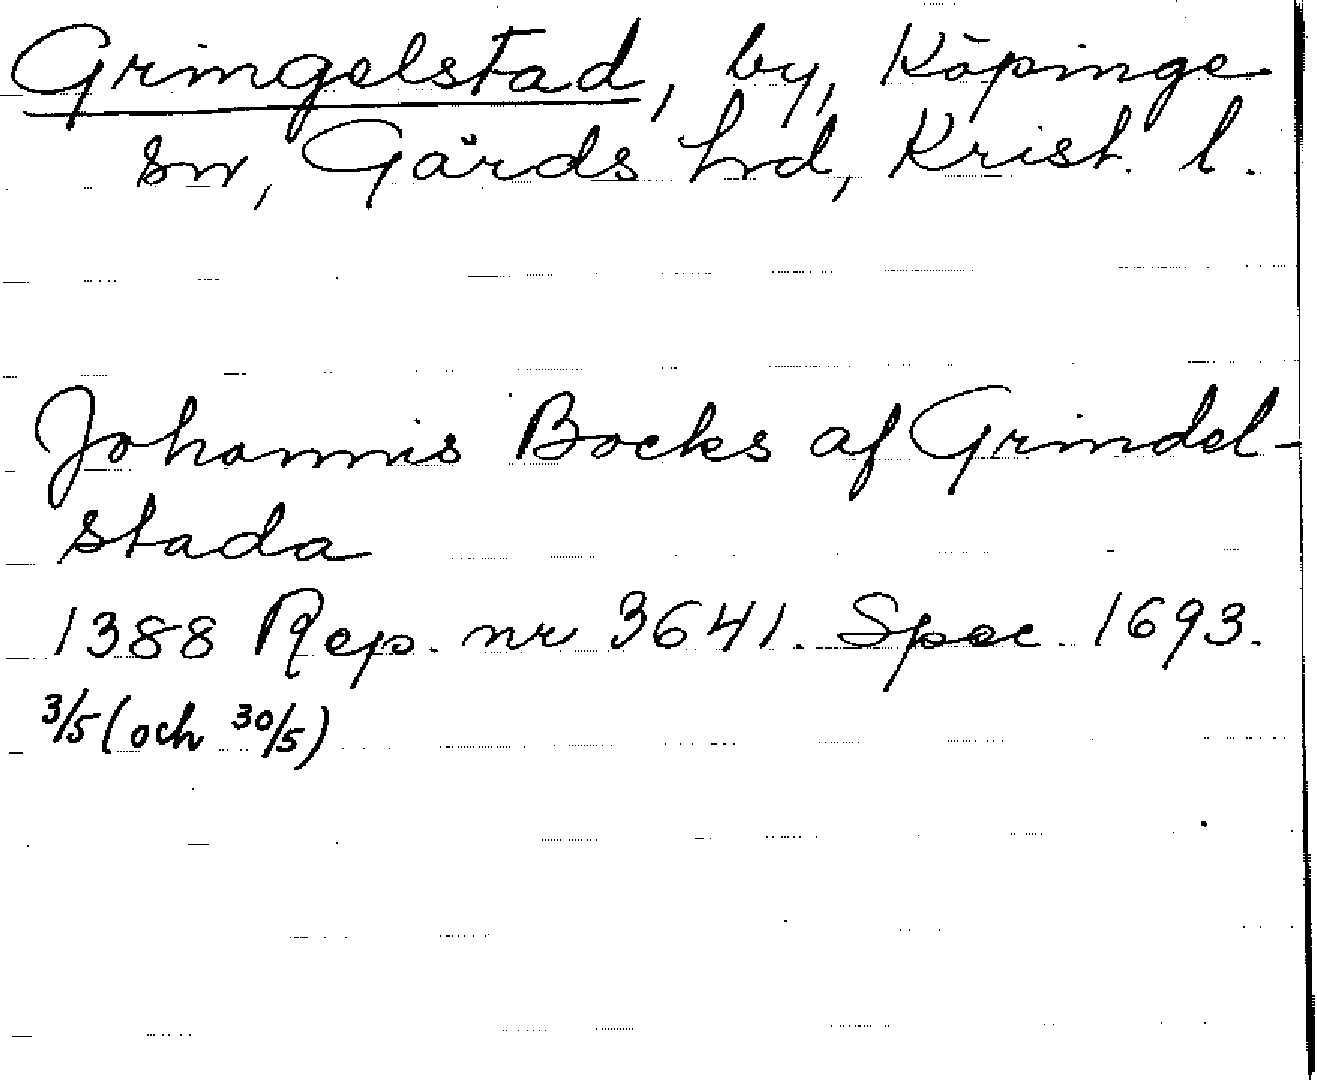 Gringelstad, by, Köpinge
sn, Gärds hrd, Krist. l.
Johannis Bocks af Grindel-
stada
1388 Rep. nr 3641. Spec. 1693.
3/5 (och 30/5)